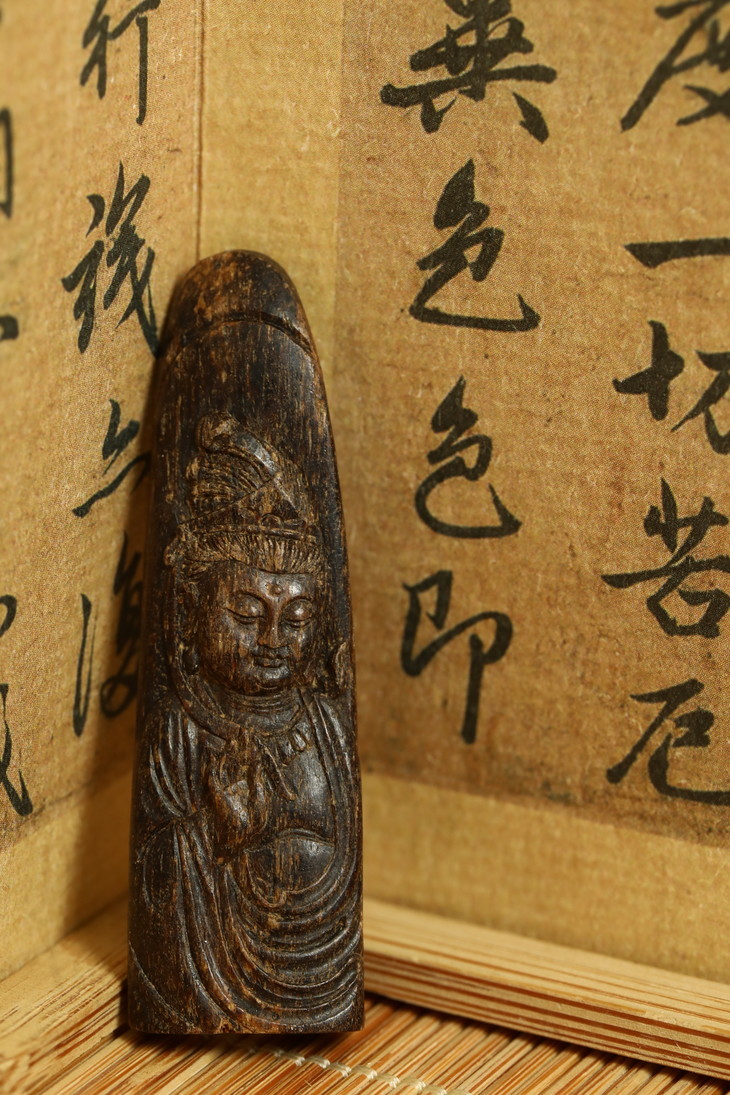 度一切苦厄
異色色即
行識亦復